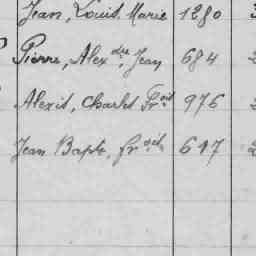 Jean, Louis, Marie 1280 3
Pierre, Alexdre, Jean 684 2
Alexis, Charles Frois 976 2
Jean Bapte, frois 647 2